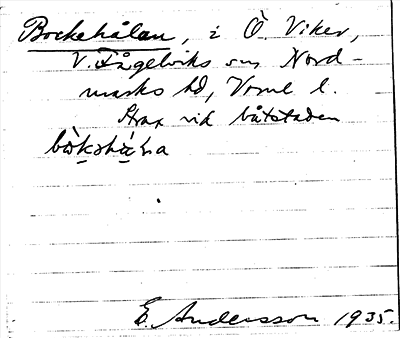 Bockehålan, i Ö. Viker,
V. Fågelviks sn, Nord-
marks hd, Vrml l.
Strax vid båtstaden
E. Andersson 1935.